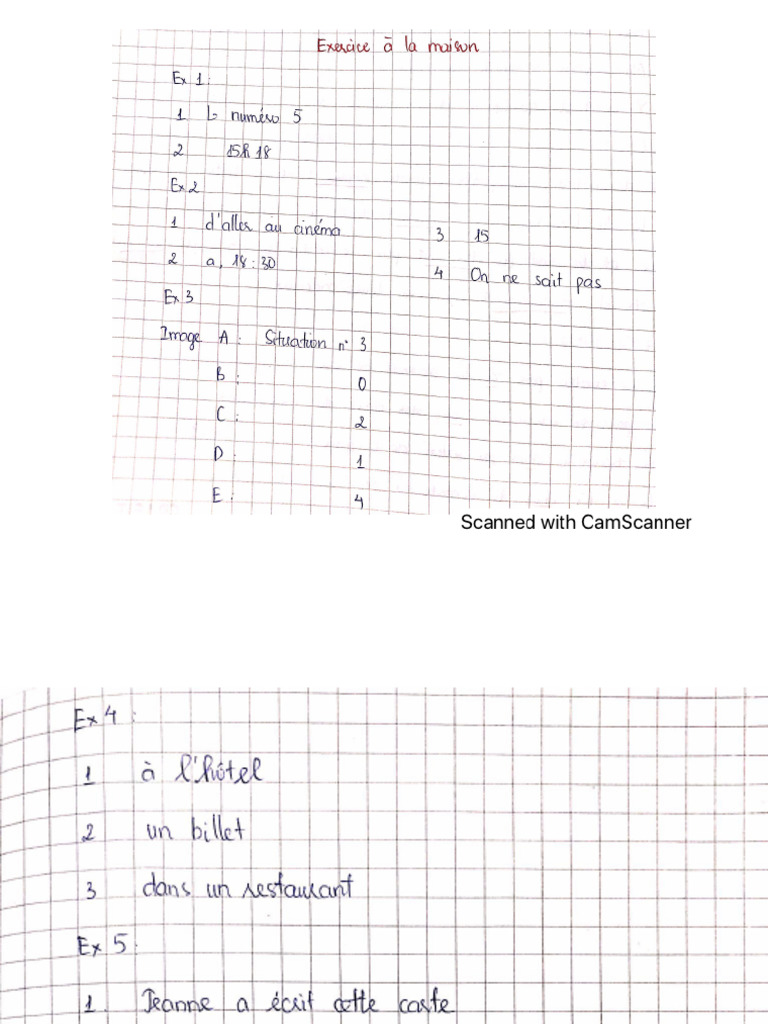 Exercice à la maison
Ex 1:
1 L numéro 5
2 15h 18
Ex 2
1 d'aller au cinéma
3 15
2 a, 18:30
4 On ne sait pas
Ex 3
Image A: Situation n° 3
B: 0
C: 2
D: 1
E: 4
Scanned with CamScanner
Ex 4:
1 à l'hôtel
2 un billet
3 dans un restaurant
Ex 5:
1. Jeanne a écrit cette carte